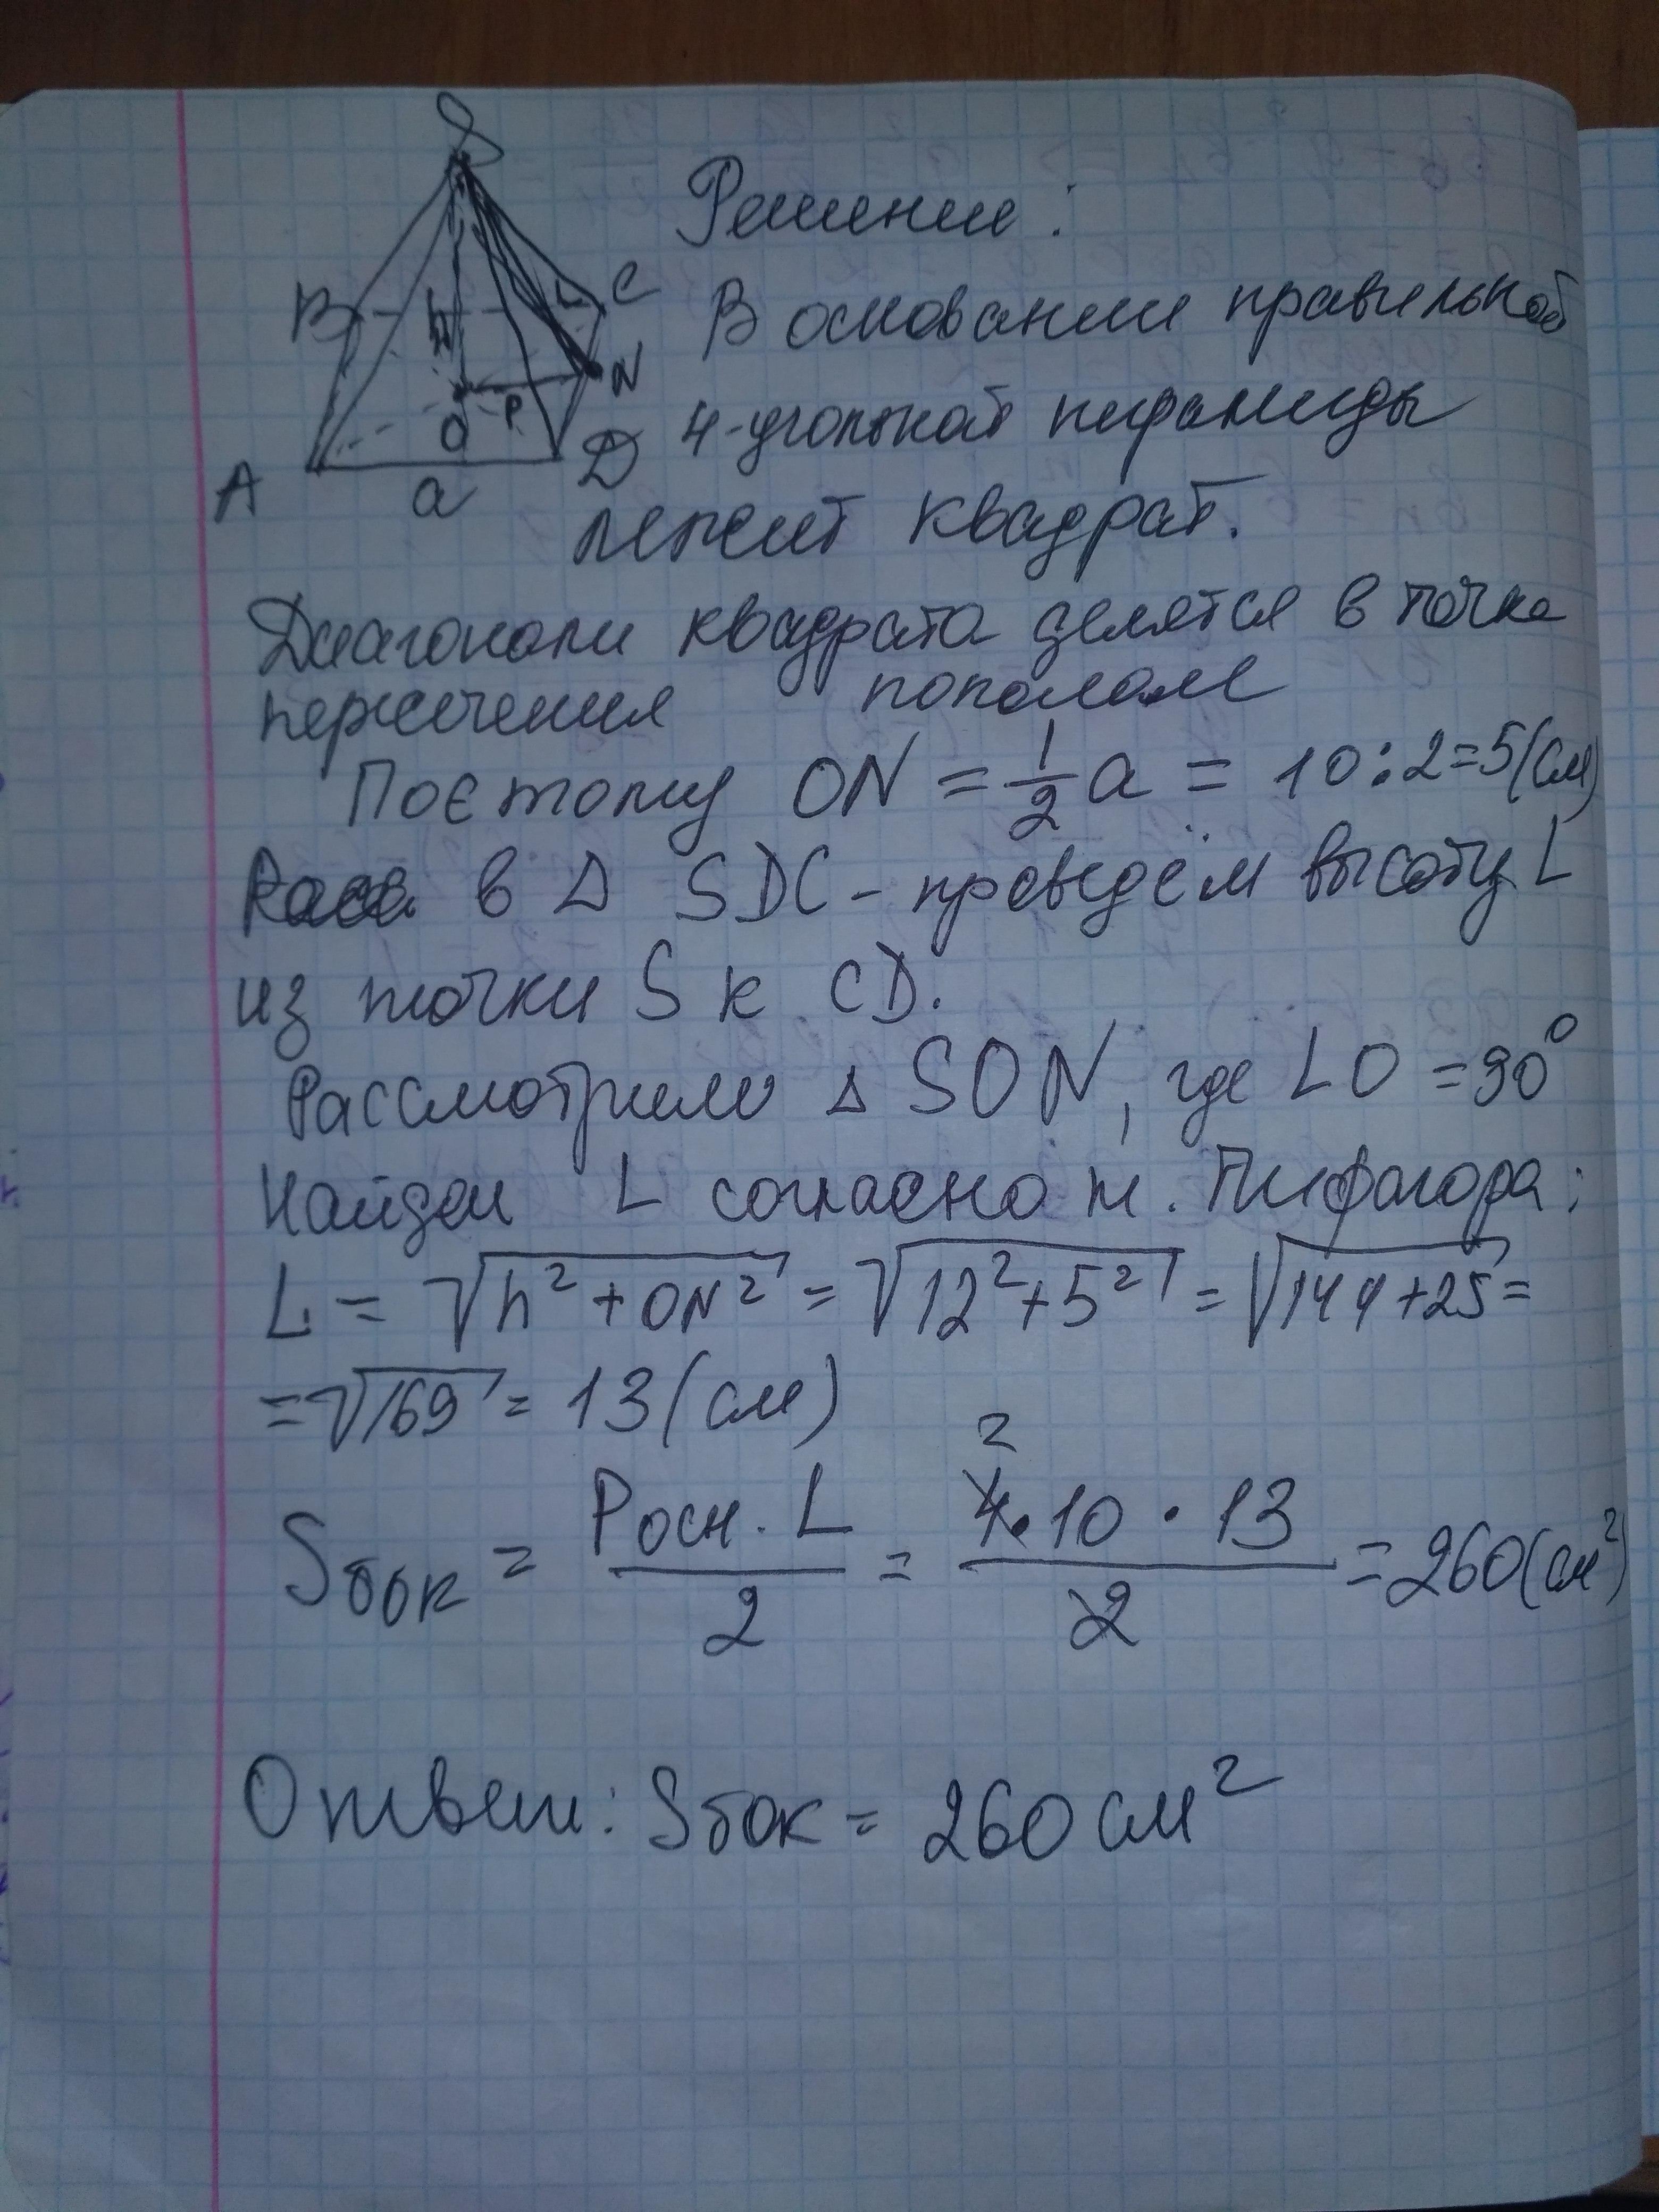 S
B
h
L
C
N
O
P
A
a
D
Решение:
В основании правильной
4-угольной пирамиды
лежит квадрат.
Диагонали квадрата делятся в точке
пересечения пополам
Поєтому ON = 1/2 a = 10:2=5(см)
в Δ SDC - проведём высоту L
из точки S к CD.
Рассмотрим Δ SON, где ∠O = 90°
Найдем L согласно т. Пифагора:
L = √(h² + ON²) = √(12² + 5²) = √(144+25) =
= √169 = 13 (см)
Sбок = (Pосн. L)/2 = (4·10·13)/2 = 260(см²)
2
Ответ: Sбок = 260 см²